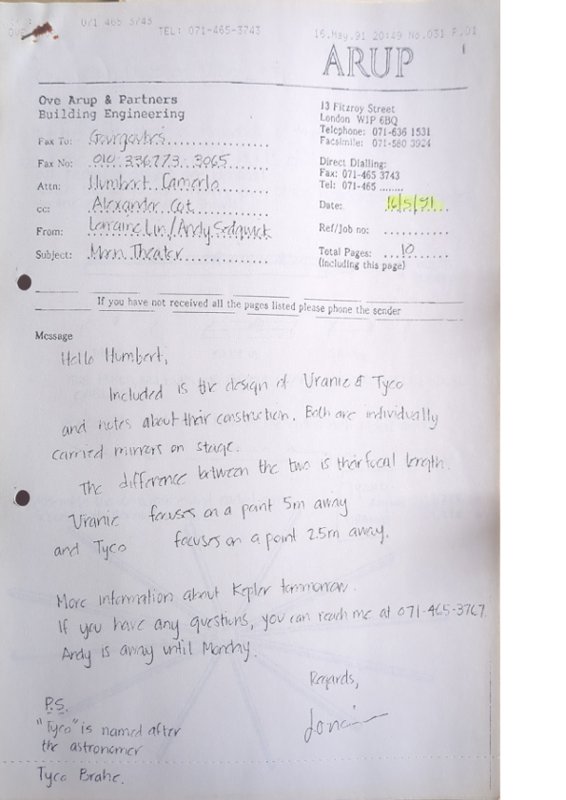 071 465 3743
TEL: 071-465-3743
16.May.91 20:49 No.031 P.01
ARUP
1
Ove Arup & Partners
Building Engineering
13 Fitzroy Street
London W1P 6BQ
Telephone: 071-636 1531
Facsimile: 071-580 3924
Direct Dialling:
Fax: 071-465 3743
Tel: 071-465 ........
Fax To:
Fax No: 010 336773 3065
Attn: Humbert Camerlo
cc: Alexander Cot
From: Lorraine Lin/Andy Sedgwick
Subject: Moon Theater
Date: 16/5/91
Ref/Job no:
Total Pages: 10
(including this page)
If you have not received all the pages listed please phone the sender
Message
Hello Humbert,
Included is the design of Uranie & Tyco
and notes about their construction. Both are individually
carried mirrors on stage.
The difference between the two is their focal length.
Uranie focuses on a point 5m away
and Tyco focuses on a point 2.5m away.
More information about Kepler tommorrow.
If you have any questions, you can reach me at 071-465-3767.
Andy is away until Monday.
Regards,
P.S.
"Tyco" is named after
the astronomer
Tyco Brahe.